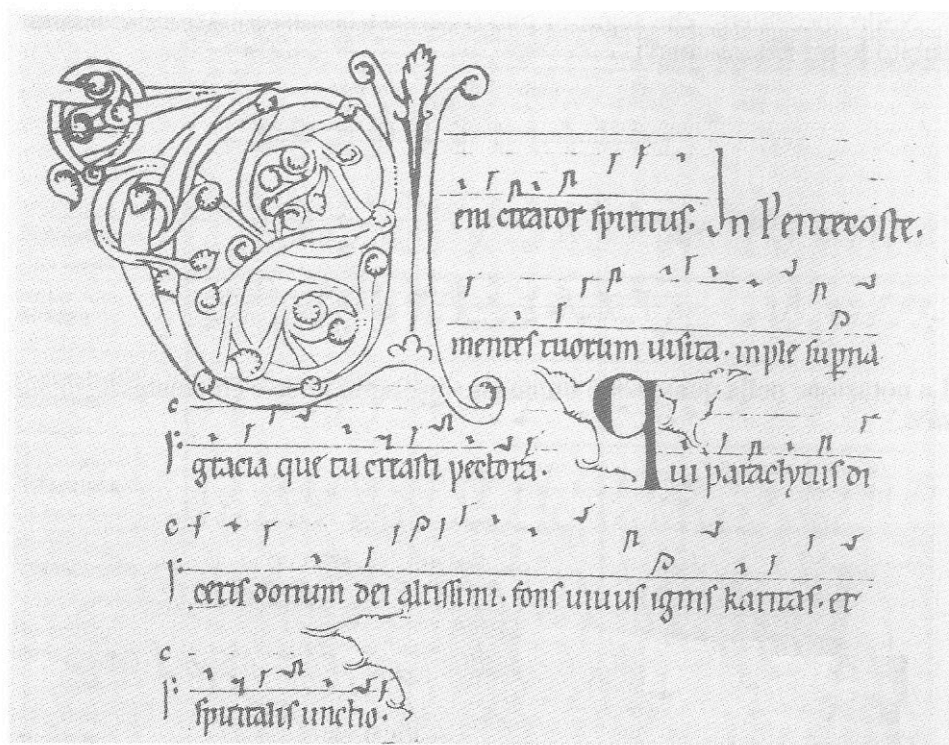 Veni creator spiritus. In Pentecoste.
mentes tuorum uisita · inple suꝑna
gracia que tu creasti pectora · Qui paraclytus di
ceris donum dei altissimi · fons uiuus ignis karitas · et
spiritalis unctio ·